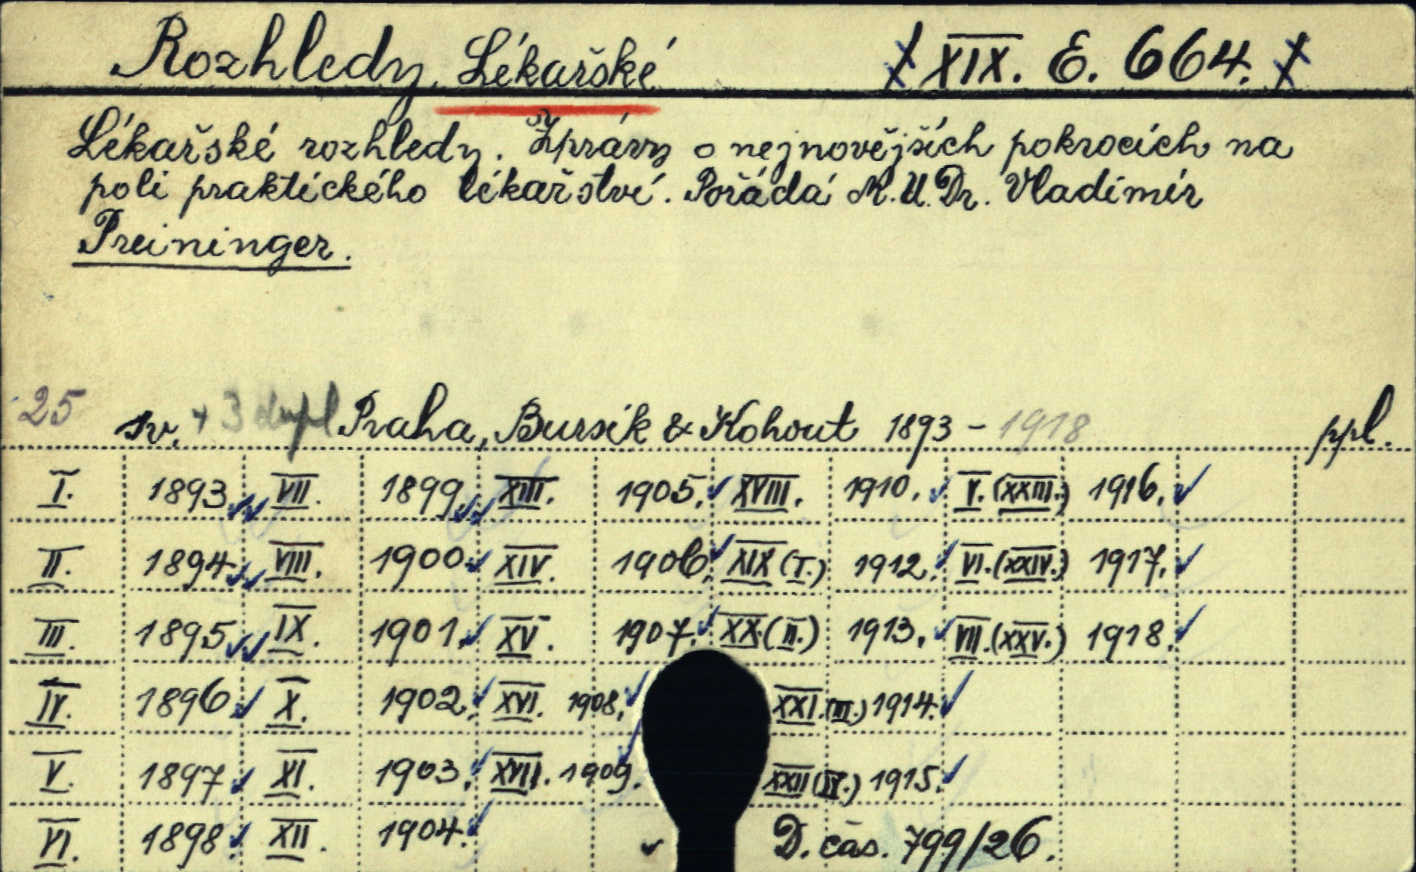 Rozhledy Lékařské XIX. E. 664.
Lékařské rozhledy. Zprávy o nejnovějších pokrocích na
poli praktického lékařství. Pořádá M.U.Dr. Vladimír
Preininger.
25 sv. + 3 dupl Praha, Bursík & Kohout 1893 - 1918 ppl.
I. 1893 VII. 1899 XIII. 1905. XVIII. 1910. V. (XXIII.) 1916.
II. 1894 VIII. 1900 XIV. 1906. XIX (I.) 1912. VI. (XXIV.) 1917.
III. 1895 IX. 1901. XV. 1907. XX (II.) 1913. VII. (XXV.) 1918.
IV. 1896 X. 1902. XVI. 1908. XXI. (III.) 1914.
V. 1897 XI. 1903. XVII. 1909. XXII (IV.) 1915.
VI. 1898. XII. 1904. D. čas. 799/26.